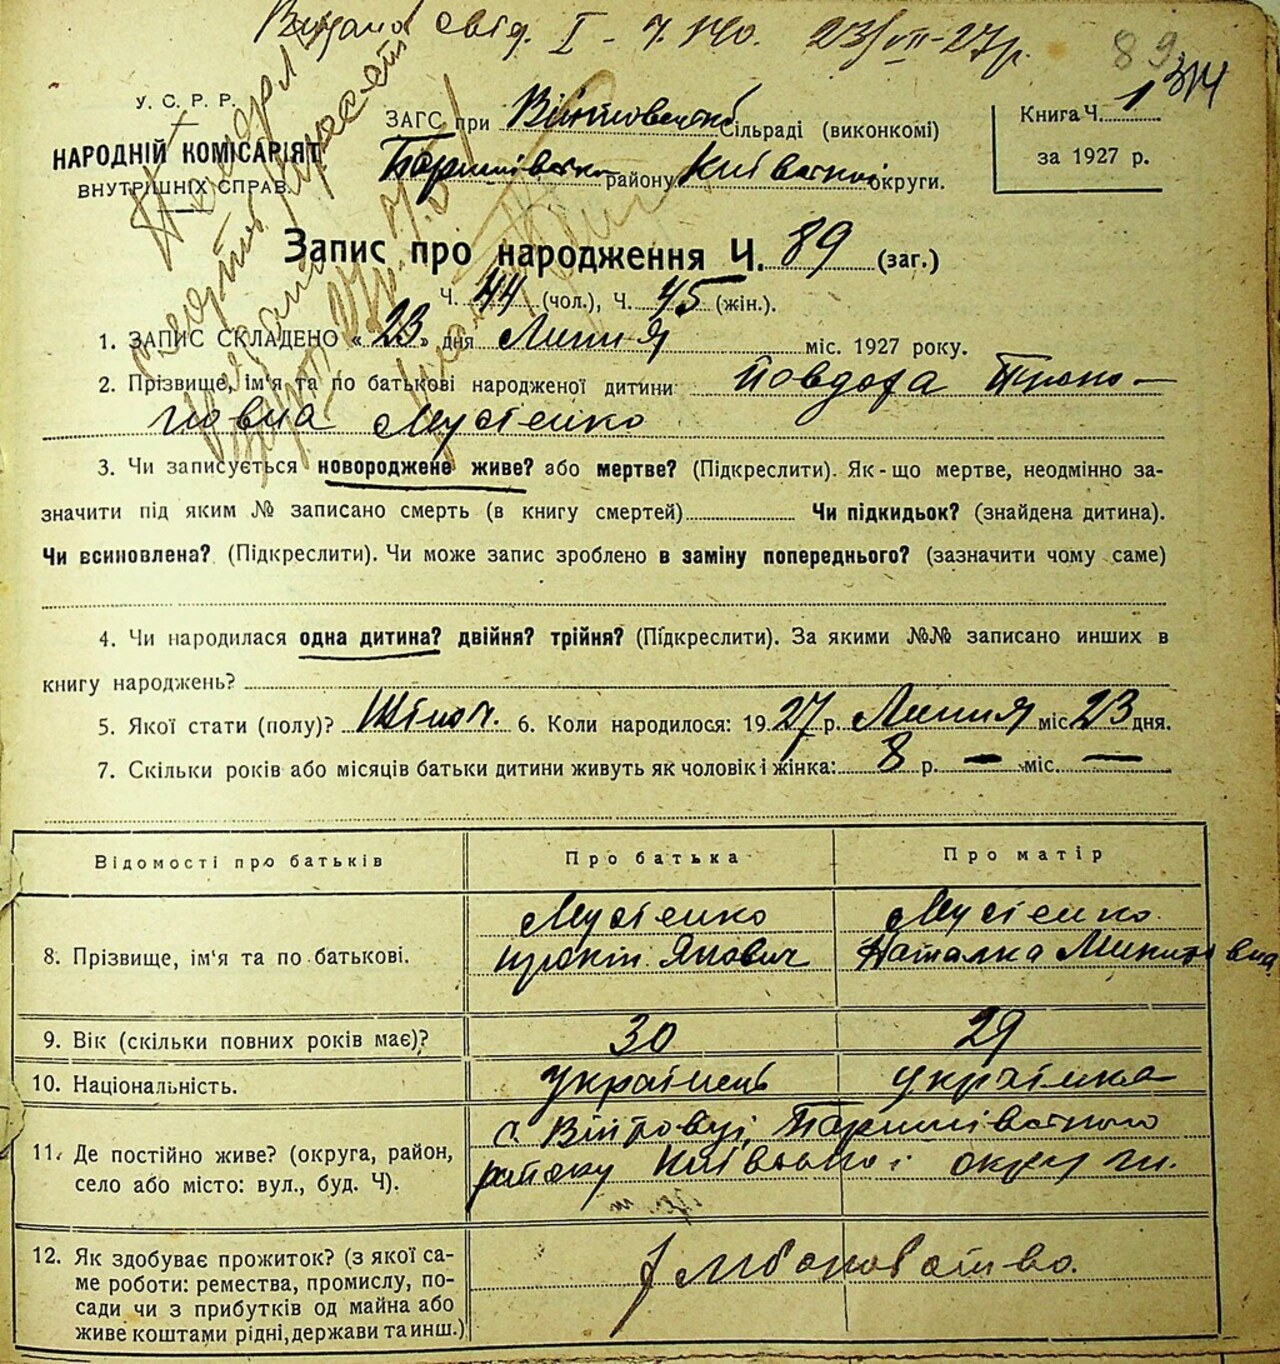 Видано свід. I - ч. 140. 23/VII-27 р.
89
314
У. С. Р. Р.
НАРОДНІЙ КОМІСАРІЯТ
ВНУТРІШНІХ СПРАВ.
ЗАГС при Війтовецькій Сільраді (виконкомі)
Баришівськ району Київської округи.
Книга Ч. 1
за 1927 р.
Запис про народження Ч. 89 (заг.)
Ч. 44 (чол.), Ч. 45 (жін.).
1. ЗАПИС СКЛАДЕНО « 23 » дня Липня міс. 1927 року.
2. Прізвище, ім'я та по батькові народженої дитини Повдоха Проко-
повна Мусієнко
3. Чи записується новороджене живе? або мертве? (Підкреслити). Як-що мертве, неодмінно за-
значити під яким № записано смерть (в книгу смертей) Чи підкидьок? (знайдена дитина).
Чи всиновлена? (Підкреслити). Чи може запис зроблено в заміну попереднього? (зазначити чому саме)
4. Чи народилася одна дитина? двійня? трійня? (Підкреслити). За якими №№ записано инших в
книгу народжень?
5. Якої стати (полу)? Жіноч. 6. Коли народилося: 1927 р. Липня міс. 23 дня.
7. Скільки років або місяців батьки дитини живуть як чоловік і жінка: 8 р. — міс. —
Відомості про батьків Про батька Про матір
8. Прізвище, ім'я та по батькові.
Мусієнко
Прокіп Якович
Мусієнко
Наталка Микитовна
9. Вік (скільки повних років має)? 30 29
10. Національність. Українець Українка
11. Де постійно живе? (округа, район,
село або місто: вул., буд. Ч).
с. Війтовці, Баришівського
району Київської округи.
12. Як здобуває прожиток? (з якої са-
ме роботи: ремества, промислу, по-
сади чи з прибутків од майна або
живе коштами рідні, держави та инш.)
Хліборобство.